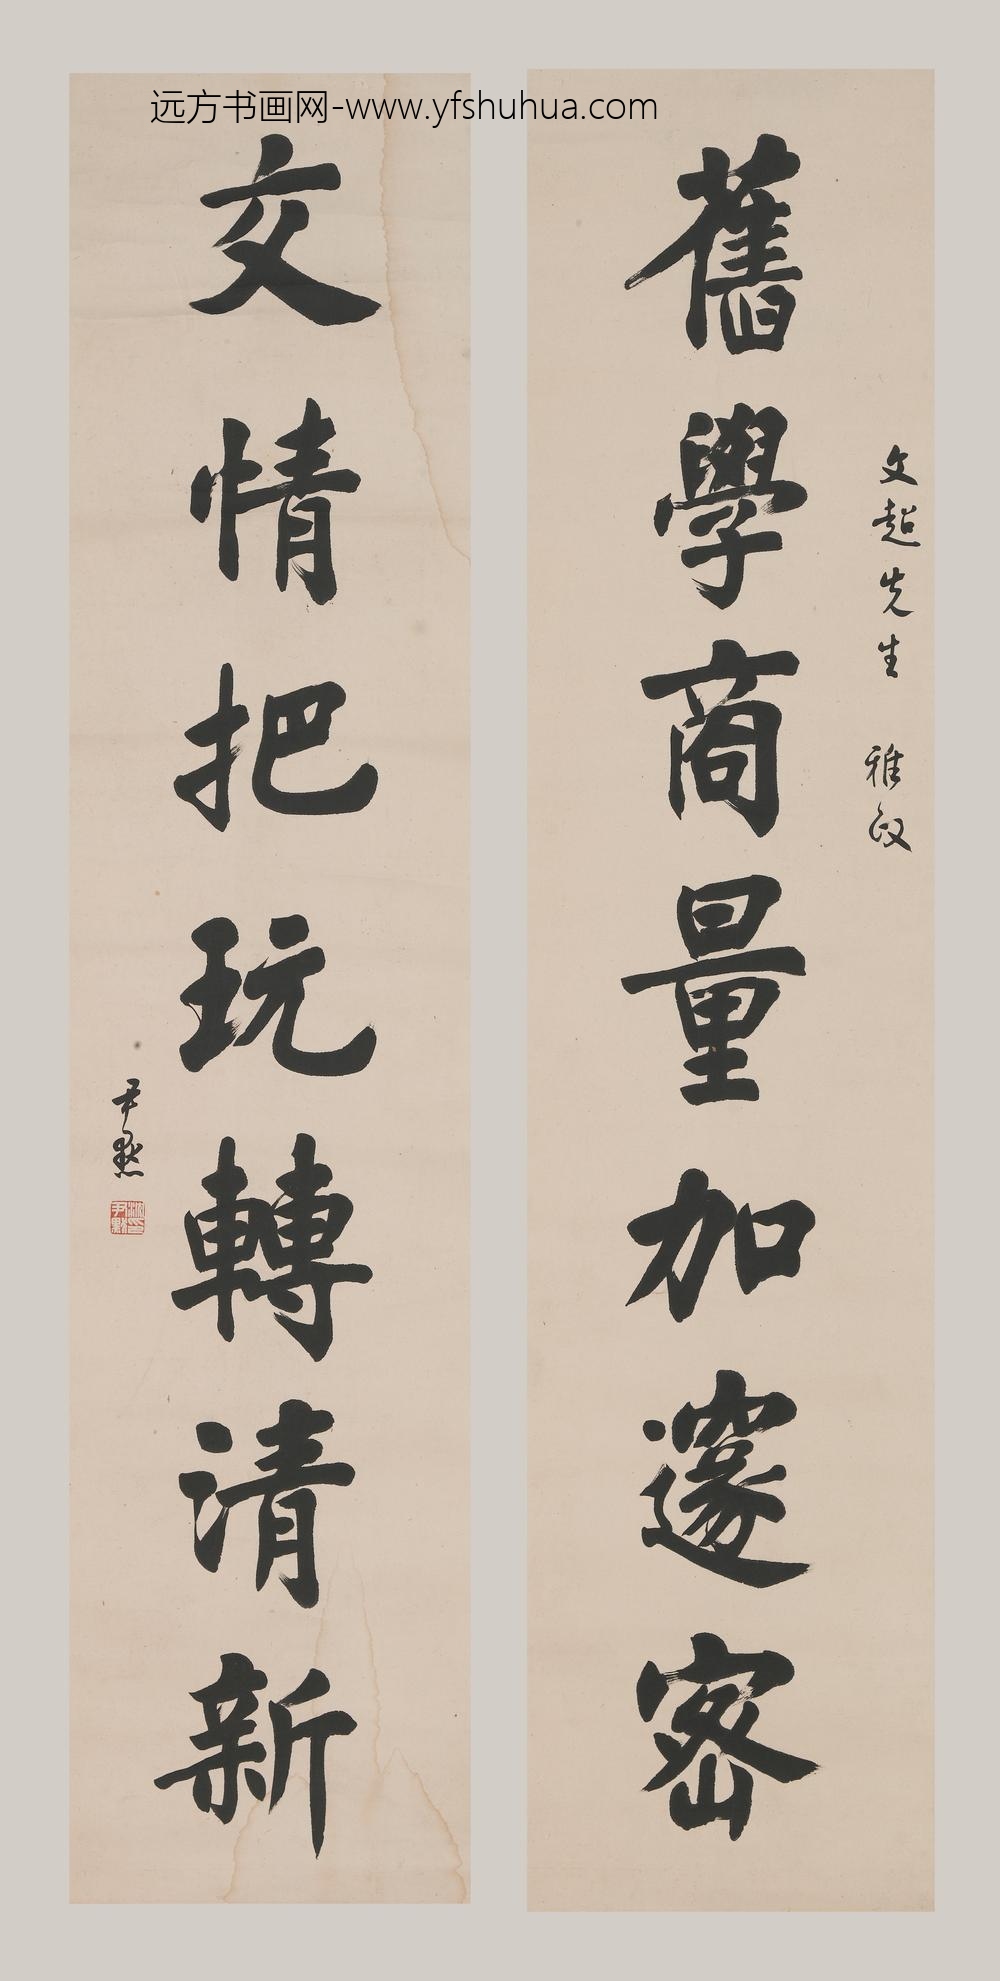 远方书画网-www.yfshuhua.com
舊學商量加邃密
文超先生 雅政
交情把玩轉清新
尹默
沈尹默印